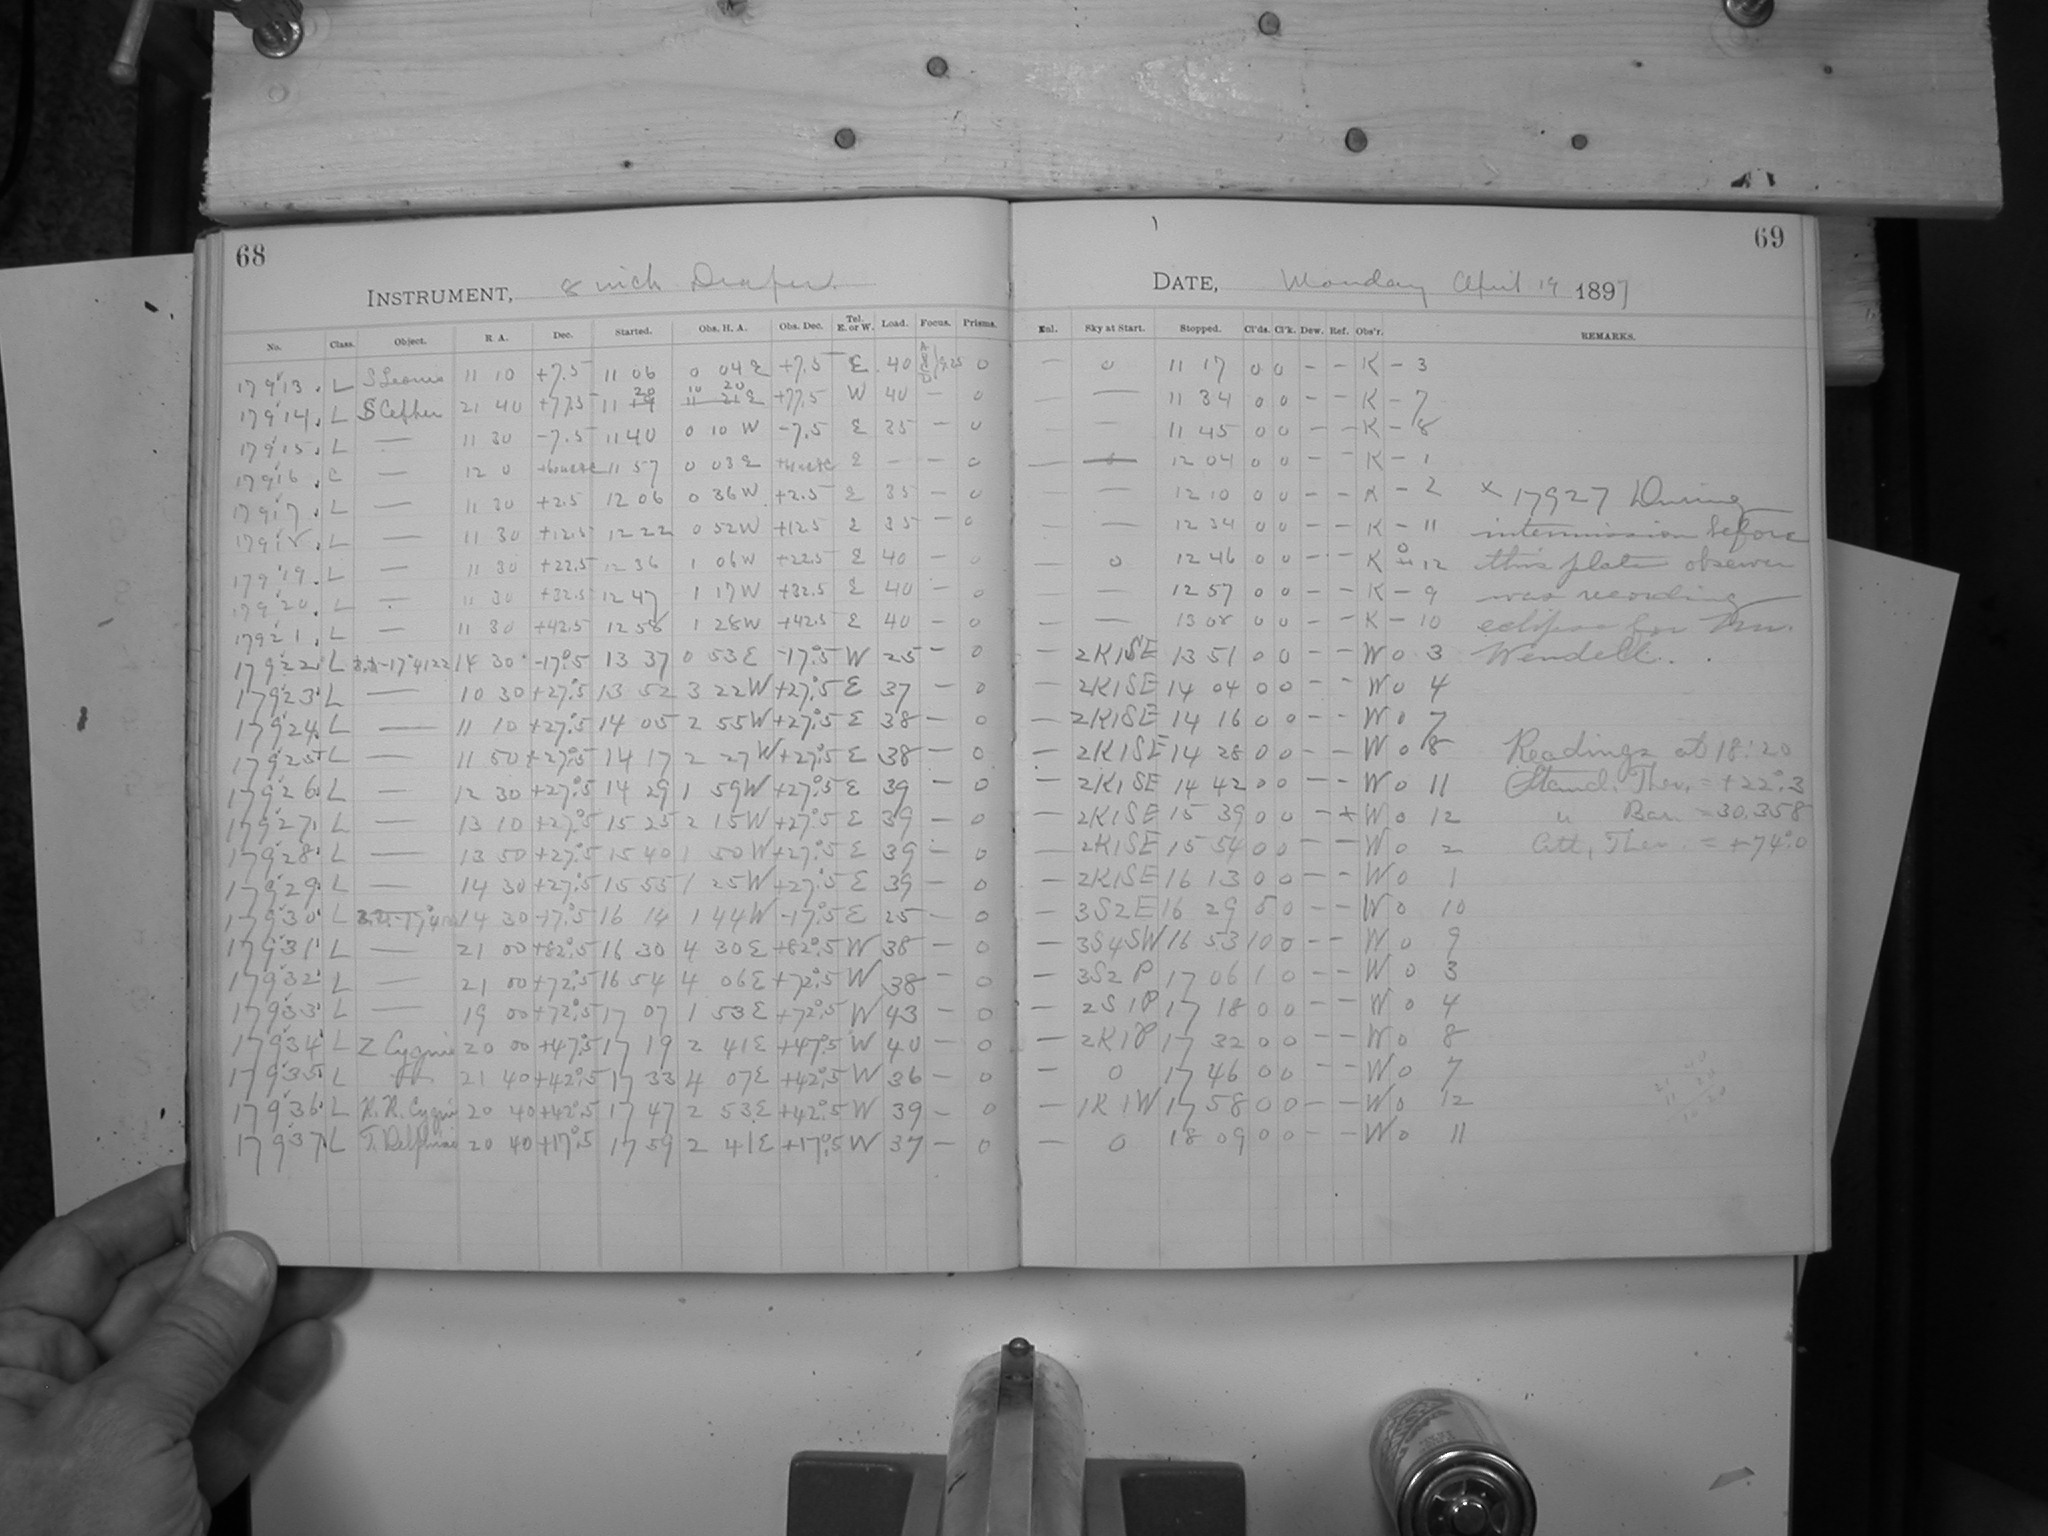 68
INSTRUMENT, 8 inch Draper.
No. Class. Object. R. A. Dec. Started. Obs. H. A. Obs. Dec. Tel. E. or W. Load. Focus. Prisms.
17913. L S Leonis 11 10 +7.5 11 06 0 04 E +7.5 E 40 0
17914. L S Cephei 21 40 +77.5 11 20 10 20 +77.5 W 40 – 0
17915. L — 11 30 -7.5 11 40 0 10 W -7.5 E 35 – 0
17916. C — 12 0 11 57 0 03 E E – – 0
17917. L — 11 30 +2.5 12 06 0 36 W +2.5 E 35 – 0
17918. L — 11 30 +12.5 12 22 0 52 W +12.5 E 35 – 0
17919. L — 11 30 +22.5 12 36 1 06 W +22.5 E 40 – 0
17920. L — 11 30 +32.5 12 47 1 17 W +32.5 E 40 – 0
17921. L — 11 30 +42.5 12 58 1 28 W +42.5 E 40 – 0
17922. L -17°4122 14 30 -17°.5 13 37 0 53 E -17°.5 W 25 – 0
17923. L — 10 30 +27°.5 13 52 3 22 W +27°.5 E 37 – 0
17924. L — 11 10 +27°.5 14 05 2 55 W +27°.5 E 38 – 0
17925. L — 11 50 +27°.5 14 17 2 27 W +27°.5 E 38 – 0
17926. L — 12 30 +27°.5 14 29 1 59 W +27°.5 E 39 – 0
17927. L — 13 10 +27°.5 15 25 2 15 W +27°.5 E 39 – 0
17928. L — 13 50 +27°.5 15 40 1 50 W +27°.5 E 39 – 0
17929. L — 14 30 +27°.5 15 55 1 25 W +27°.5 E 39 – 0
17930. L 14 30 -17°.5 16 14 1 44 W -17°.5 E 25 – 0
17931. L — 21 00 +82°.5 16 30 4 30 E +82°.5 W 38 – 0
17932. L — 21 00 +72°.5 16 54 4 06 E +72°.5 W 38 – 0
17933. L — 19 00 +72°.5 17 07 1 53 E +72°.5 W 43 – 0
17934. L Z Cygni 20 00 +47°.5 17 19 2 41 E +47°.5 W 40 – 0
17935. L — 21 40 +42°.5 17 33 4 07 E +42°.5 W 36 – 0
17936. L Cygni 20 40 +42°.5 17 47 2 53 E +42°.5 W 39 – 0
17937. L T. Delphini 20 40 +17°.5 17 59 2 41 E +17°.5 W 37 – 0
69
DATE, Monday April 19 1897
Enl. Sky at Start. Stopped. Cl'ds. Cl'k. Dew. Ref. Obs'r. REMARKS.
— 0 11 17 0 0 – – K – 3
— — 11 34 0 0 – – K – 7
— — 11 45 0 0 – – K – 8
— 12 04 0 0 – – K – 1
— — 12 10 0 0 – – K – 2
— — 12 34 0 0 – – K – 11
— 0 12 46 0 0 – – K 0 12
— — 12 57 0 0 – – K – 9
— — 13 08 0 0 – – K – 10
2K1SE 13 51 0 0 – – W 0 3
— 2K1SE 14 04 0 0 – – W 0 4
— 2K1SE 14 16 0 0 – – W 0 7
— 2K1SE 14 28 0 0 – – W 0 8
— 2K1SE 14 42 0 0 – – W 0 11
— 2K1SE 15 39 0 0 – x W 0 12
— 2K1SE 15 54 0 0 – – W 0 2
— 2K1SE 16 13 0 0 – – W 0 1
— 3S2E 16 29 5 0 – – W 0 10
— 3S4SW 16 53 10 0 – – W 0 9
— 3S2P 17 06 1 0 – – W 0 3
— 2S1P 17 18 0 0 – – W 0 4
— 2K1P 17 32 0 0 – – W 0 8
— 0 17 46 0 0 – – W 0 7
— 1K1W 17 58 0 0 – – W 0 12
— 0 18 09 0 0 – – W 0 11
x 17927 During
intermission before
this plate observer
was recording
eclipse for Mr.
Wendell.
Readings at 18:20
Stand. Ther. = +22°.3
" Bar. = 30.358
Att. Ther. = +74°.0